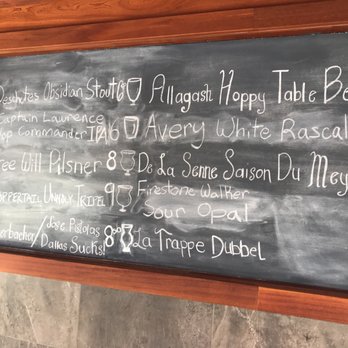 Deschutes Obsidian Stout 6
Captain Lawrence
Hop Commander IPA 6
Free Will Pilsner 8
Unholy Tripel 9
Jose Pistolas
Dallas Sucks! 8
Allagash Hoppy Table Be
Avery White Rascal
De La Senne Saison Du Mey
Firestone Walker
Sour Opal
La Trappe Dubbel